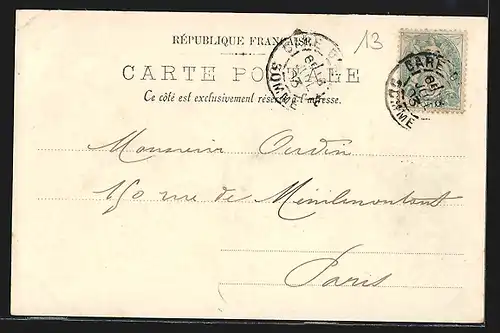 RÉPUBLIQUE FRANÇAISE
13
CARTE POSTALE
Ce côté est exclusivement réservé à l'adresse.
GARE
SOMME
GARE
SOMME
Monsieur Oudin
150 rue de Ménilmontant
Paris